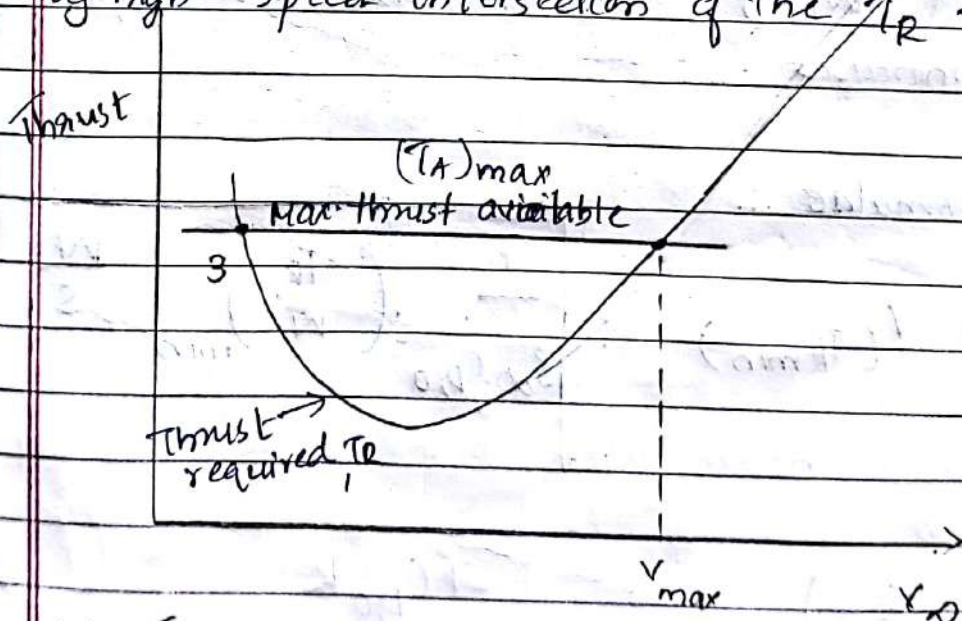 high speed intersection of the T_R
Thrust
(T_A)max
Max thrust available
3
Thrust
required T_R
V_max
V_∞